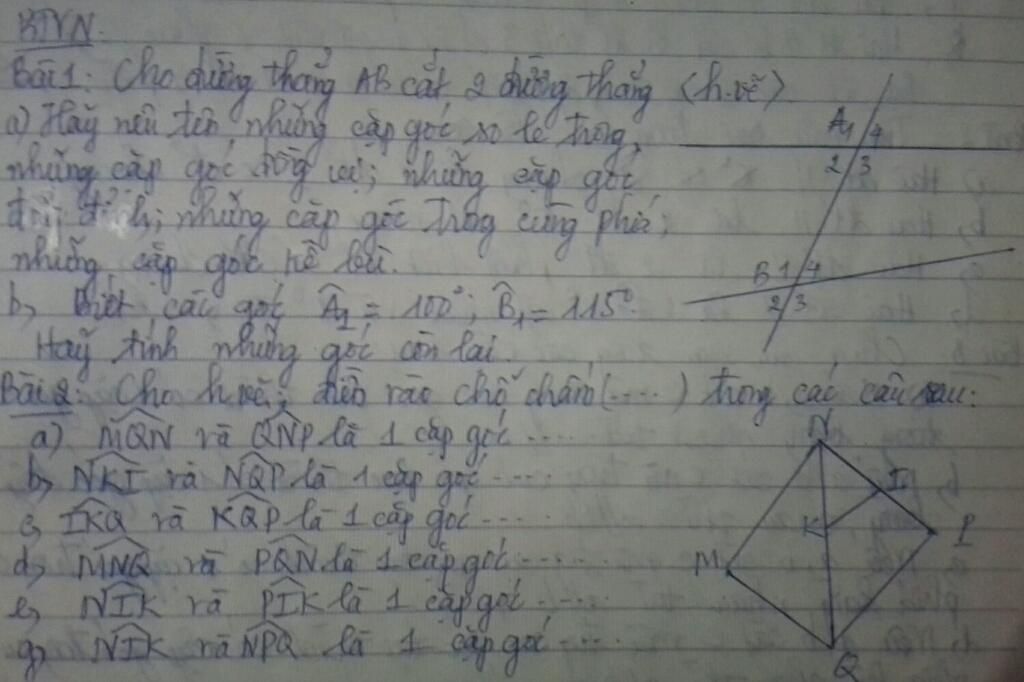 BTVN.
Bài 1: Cho đường thẳng AB cắt 2 đường thẳng (h.vẽ)
a) Hãy nêu tên những cặp góc so le trong,
những cặp góc đồng vị; những cặp góc
đối đỉnh; những cặp góc trong cùng phía;
những cặp góc kề bù.
b, Biết các góc Â1 = 100°; B̂1 = 115°.
Hãy tính những góc còn lại.
A 1 4
2 3
B 1 4
2 3
Bài 2: Cho h.vẽ; điền vào chỗ chấm (....) trong các câu sau:
a) MQN và QNP là 1 cặp góc .....
b, NKI và NQP là 1 cặp góc .....
c, IKQ và KQP là 1 cặp góc .....
d, MNQ và PQN là 1 cặp góc .....
e, NIK và PIK là 1 cặp góc .....
g, NIK và NPQ là 1 cặp góc .....
N
I
K
P
M
Q